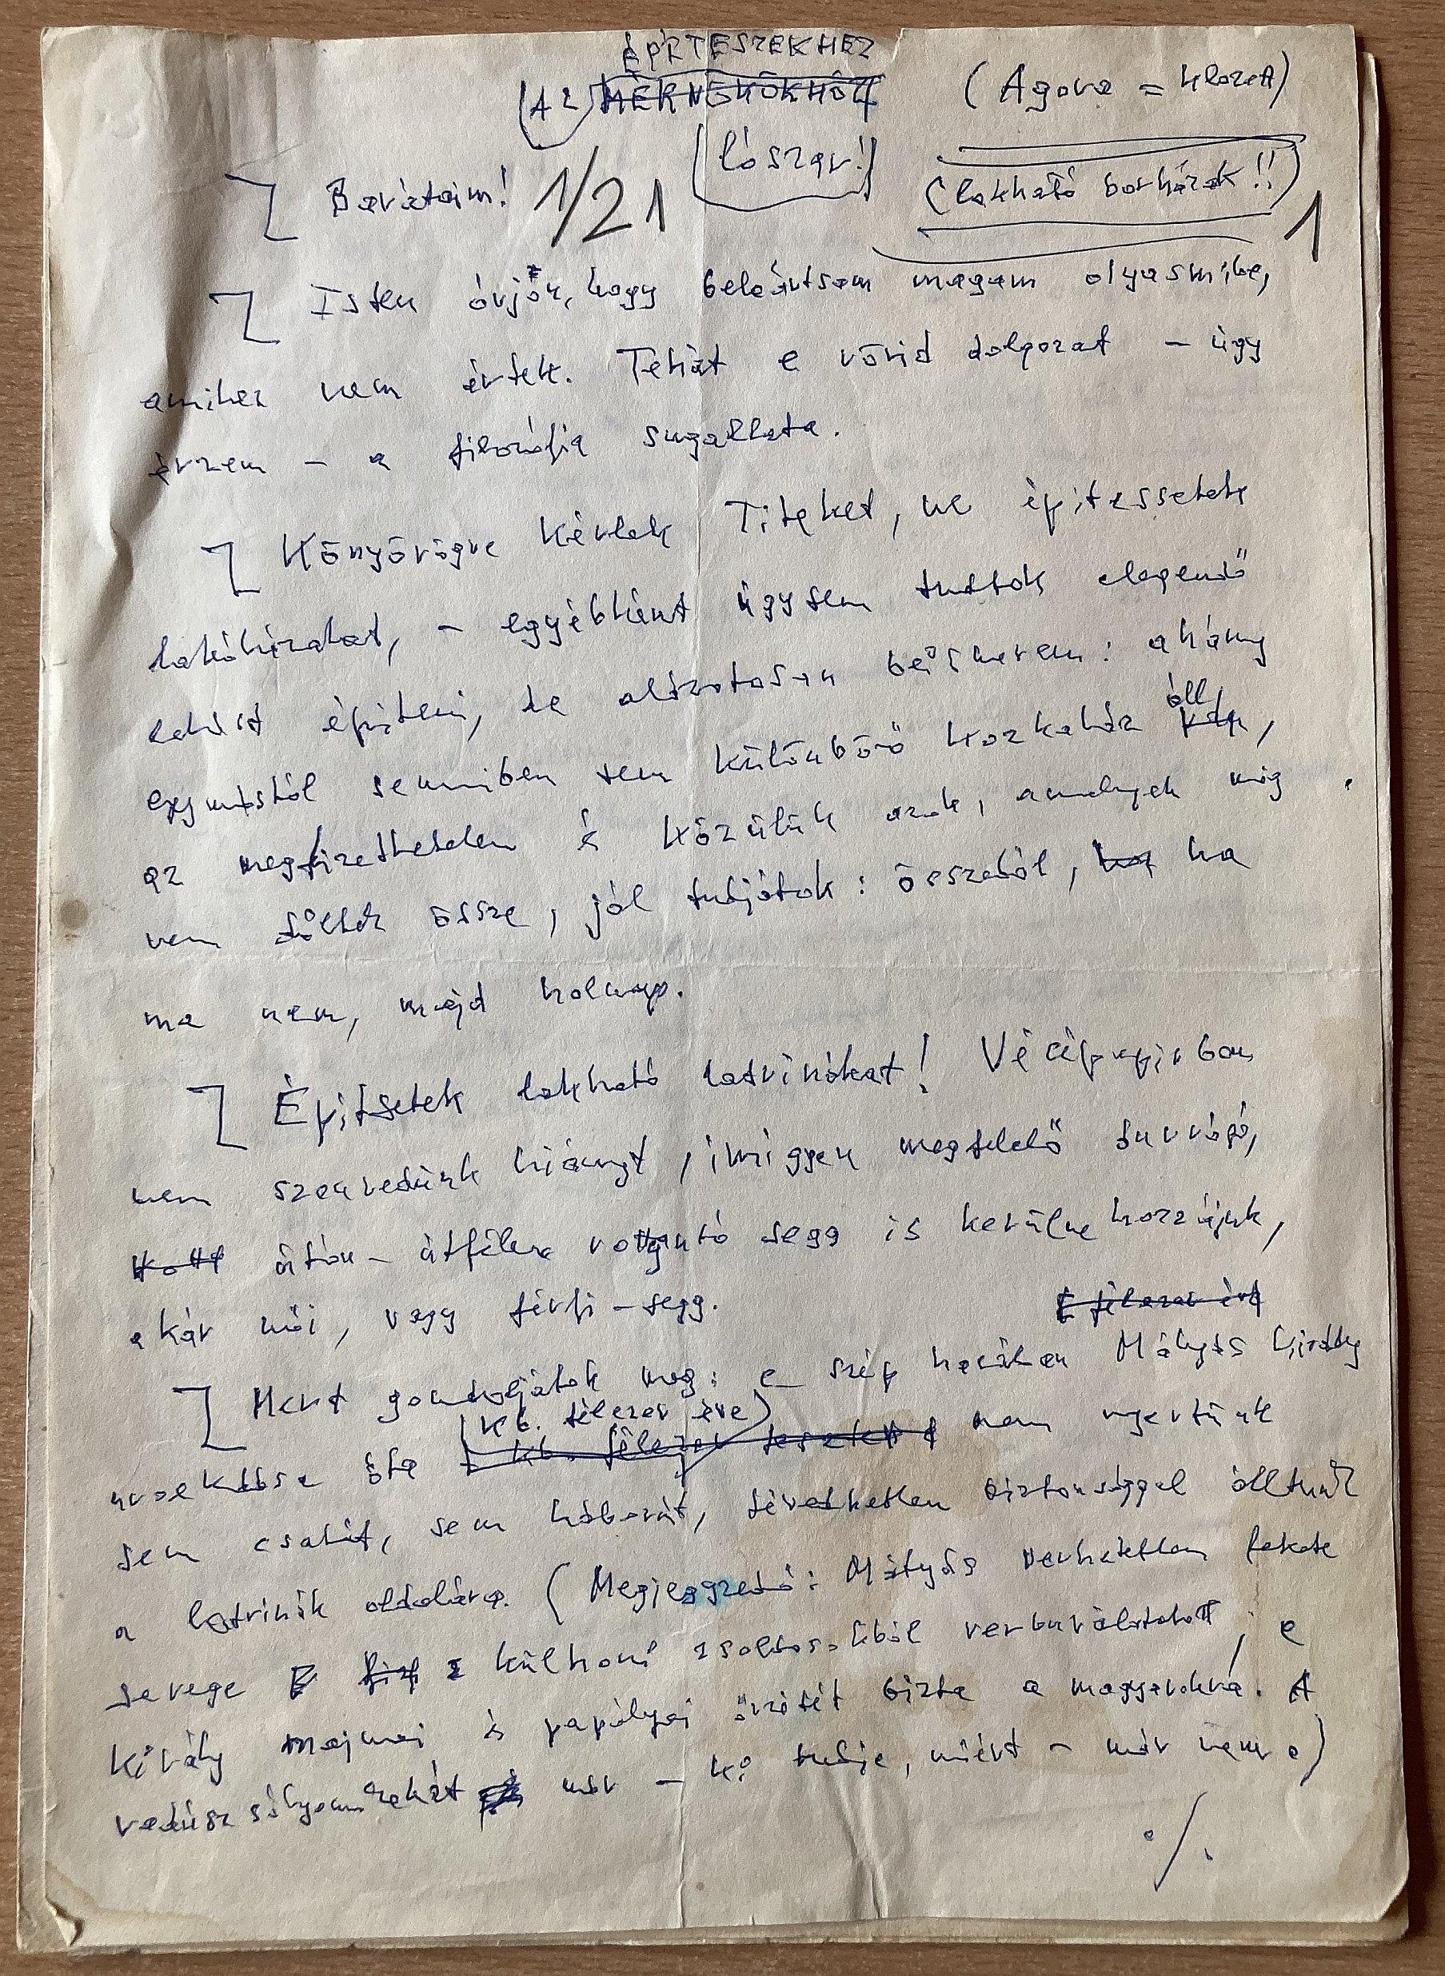 ÉPÍTÉSZEKHEZ
(AZ) MÉRNÖKÖKHÖZ
(Agora = klozett)
(lószar!)
(lakható borházak!!)
Barátaim! 1/21
1
Isten óvjon, hogy beleártsam magam olyasmibe,
amihez nem értek. Tehát e rövid dolgozat – úgy
érzem – a filozófia sugallata.
Könyörögve kérlek Titeket, ne építessetek
lakóházakat, – egyébként úgysem tudtok elegendő
lakást építeni, de alázatosan beismerem: ahány
egymástól semmiben sem különböző kockaház áll,
az megfizethetetlen és közülük azok, amelyek még
nem dőltek össze, jól tudjátok: összedől, ha
ma nem, majd holnap.
Építsetek lakható latrinákat! Vécépapírban
nem szenvedünk hiányt, imigyen megfelelő
úton-útfélen segg is kerülne hozzájuk,
akár női, vagy férfi-segg.
E félezer évt
Mert gondoljátok meg: e szép hazában Mátyás király
uralkodása óta (kb. félezer éve) nem nyertünk
kb. félezer
sem csatát, sem háborút, tévedhetetlen biztonsággal álltunk
a latrinák oldalára. (Megjegyzendő: Mátyás verhetetlen fekete
serege külhoni zsoldosokból verbuválódott, e
király majmai és papályai őrzését bízta a magyarokra. A
vadász sólyomrekát már – ki tudja, miért – már nem.)
./.